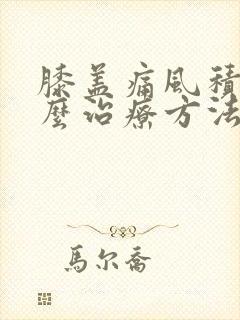 膝盖痛風積
麽治療方法
馬尔喬